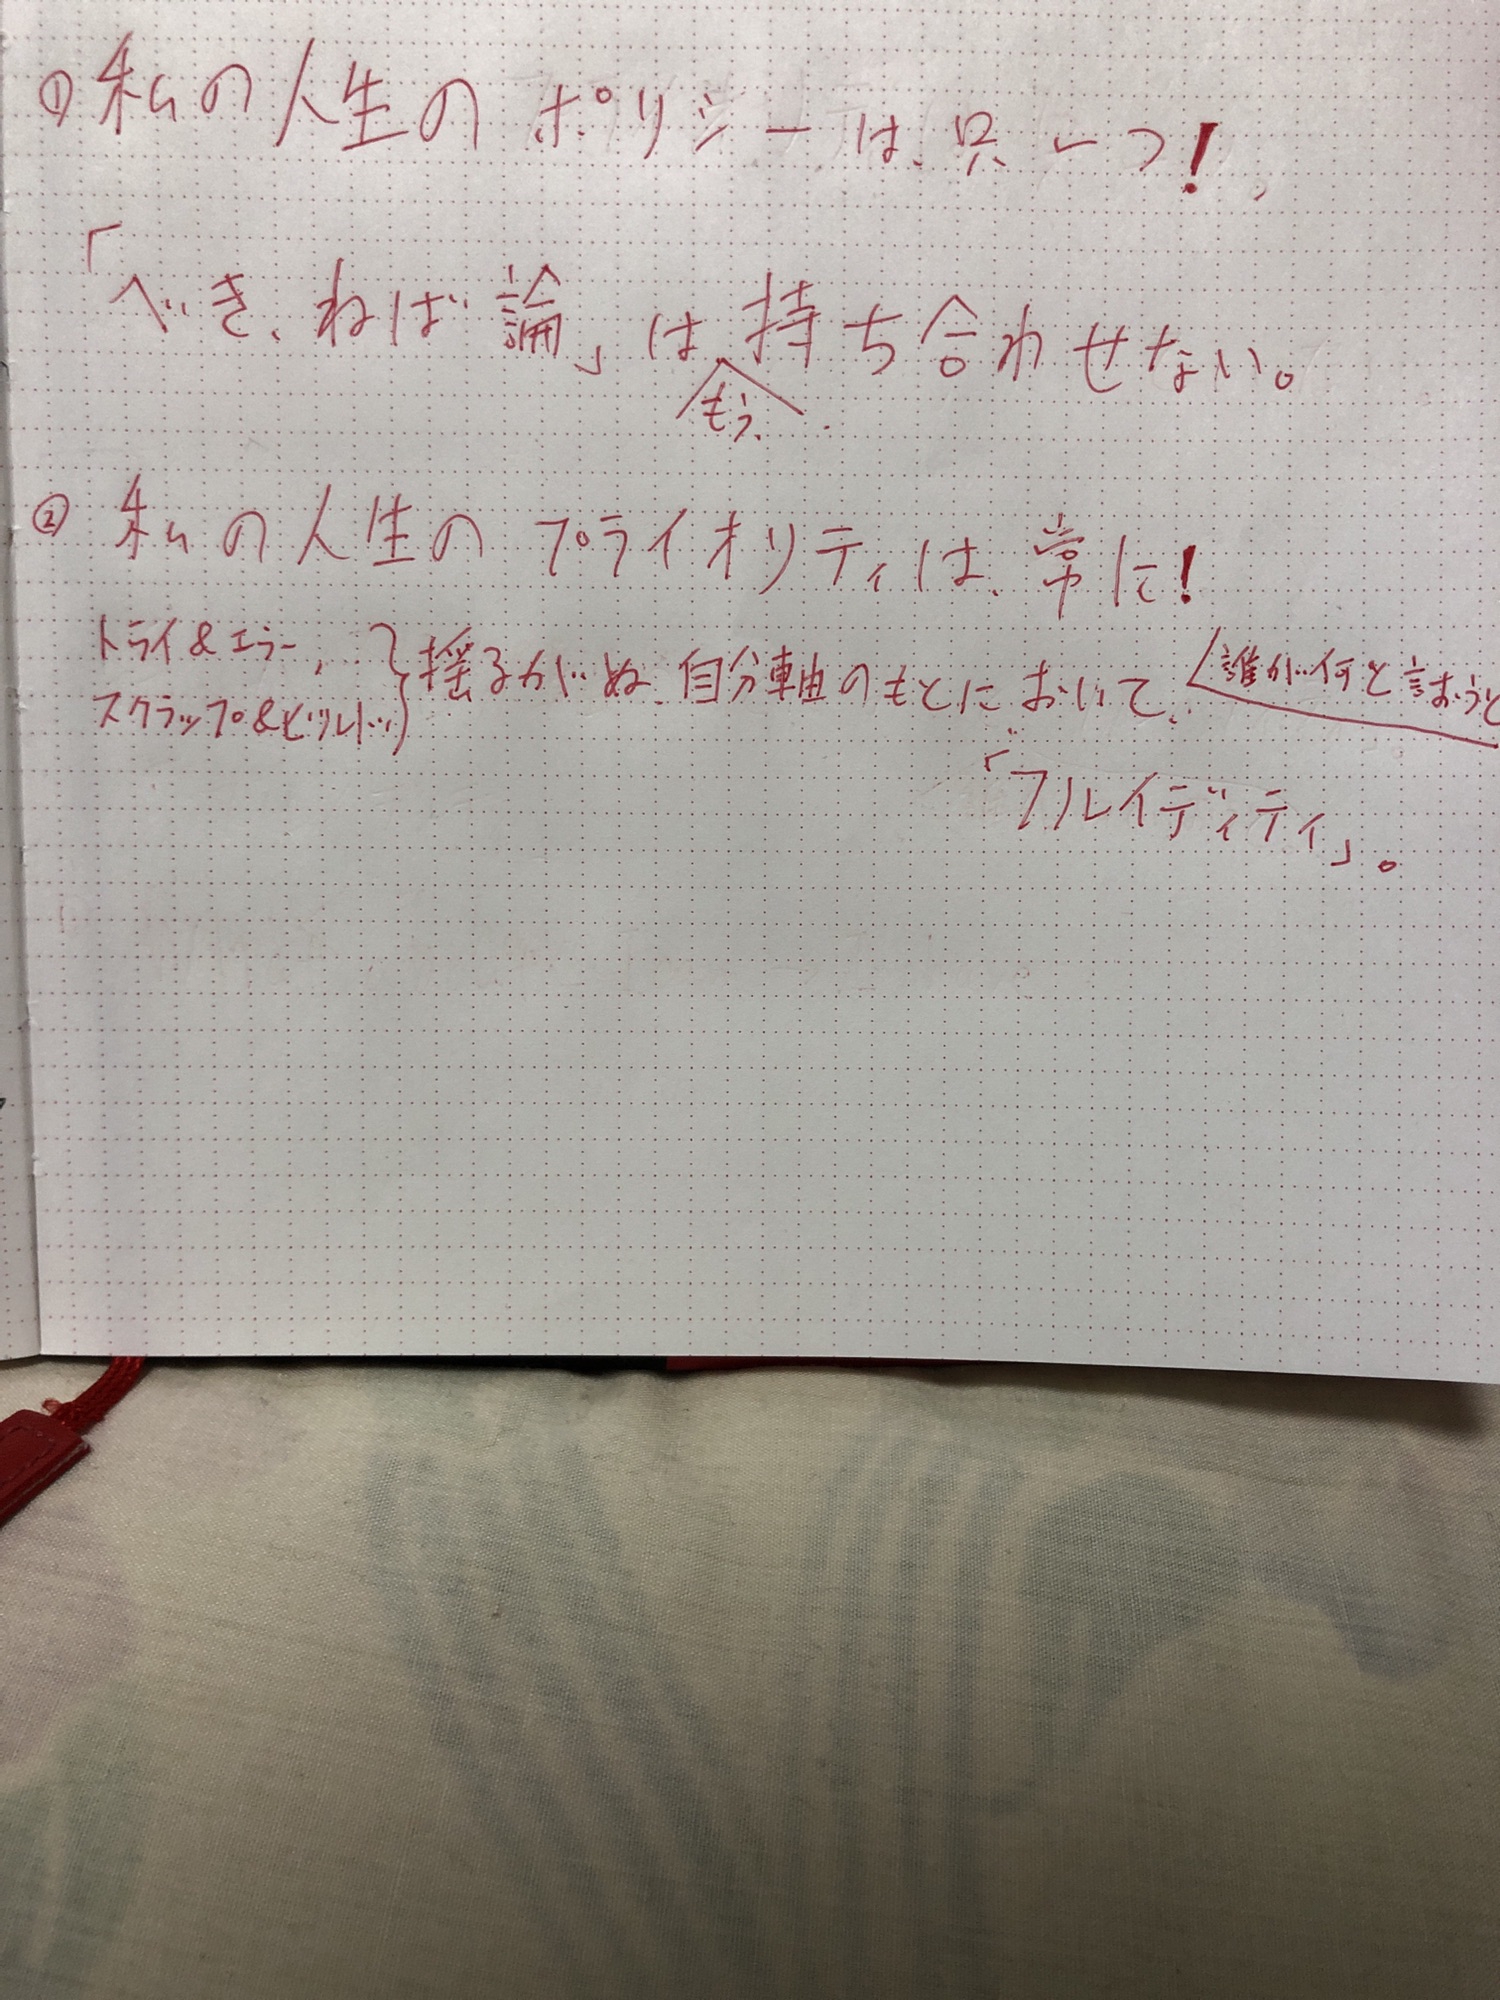 ① 私の人生のポリシーは、只一つ!
「べき、ねば論」は、持ち合わせない。
もう、
② 私の人生のプライオリティは、常に!
トライ&エラー、
スクラップ&ビルド、
揺るがぬ、自分軸のもとにおいて、
誰が何と言おうと
「フルイディティ」。